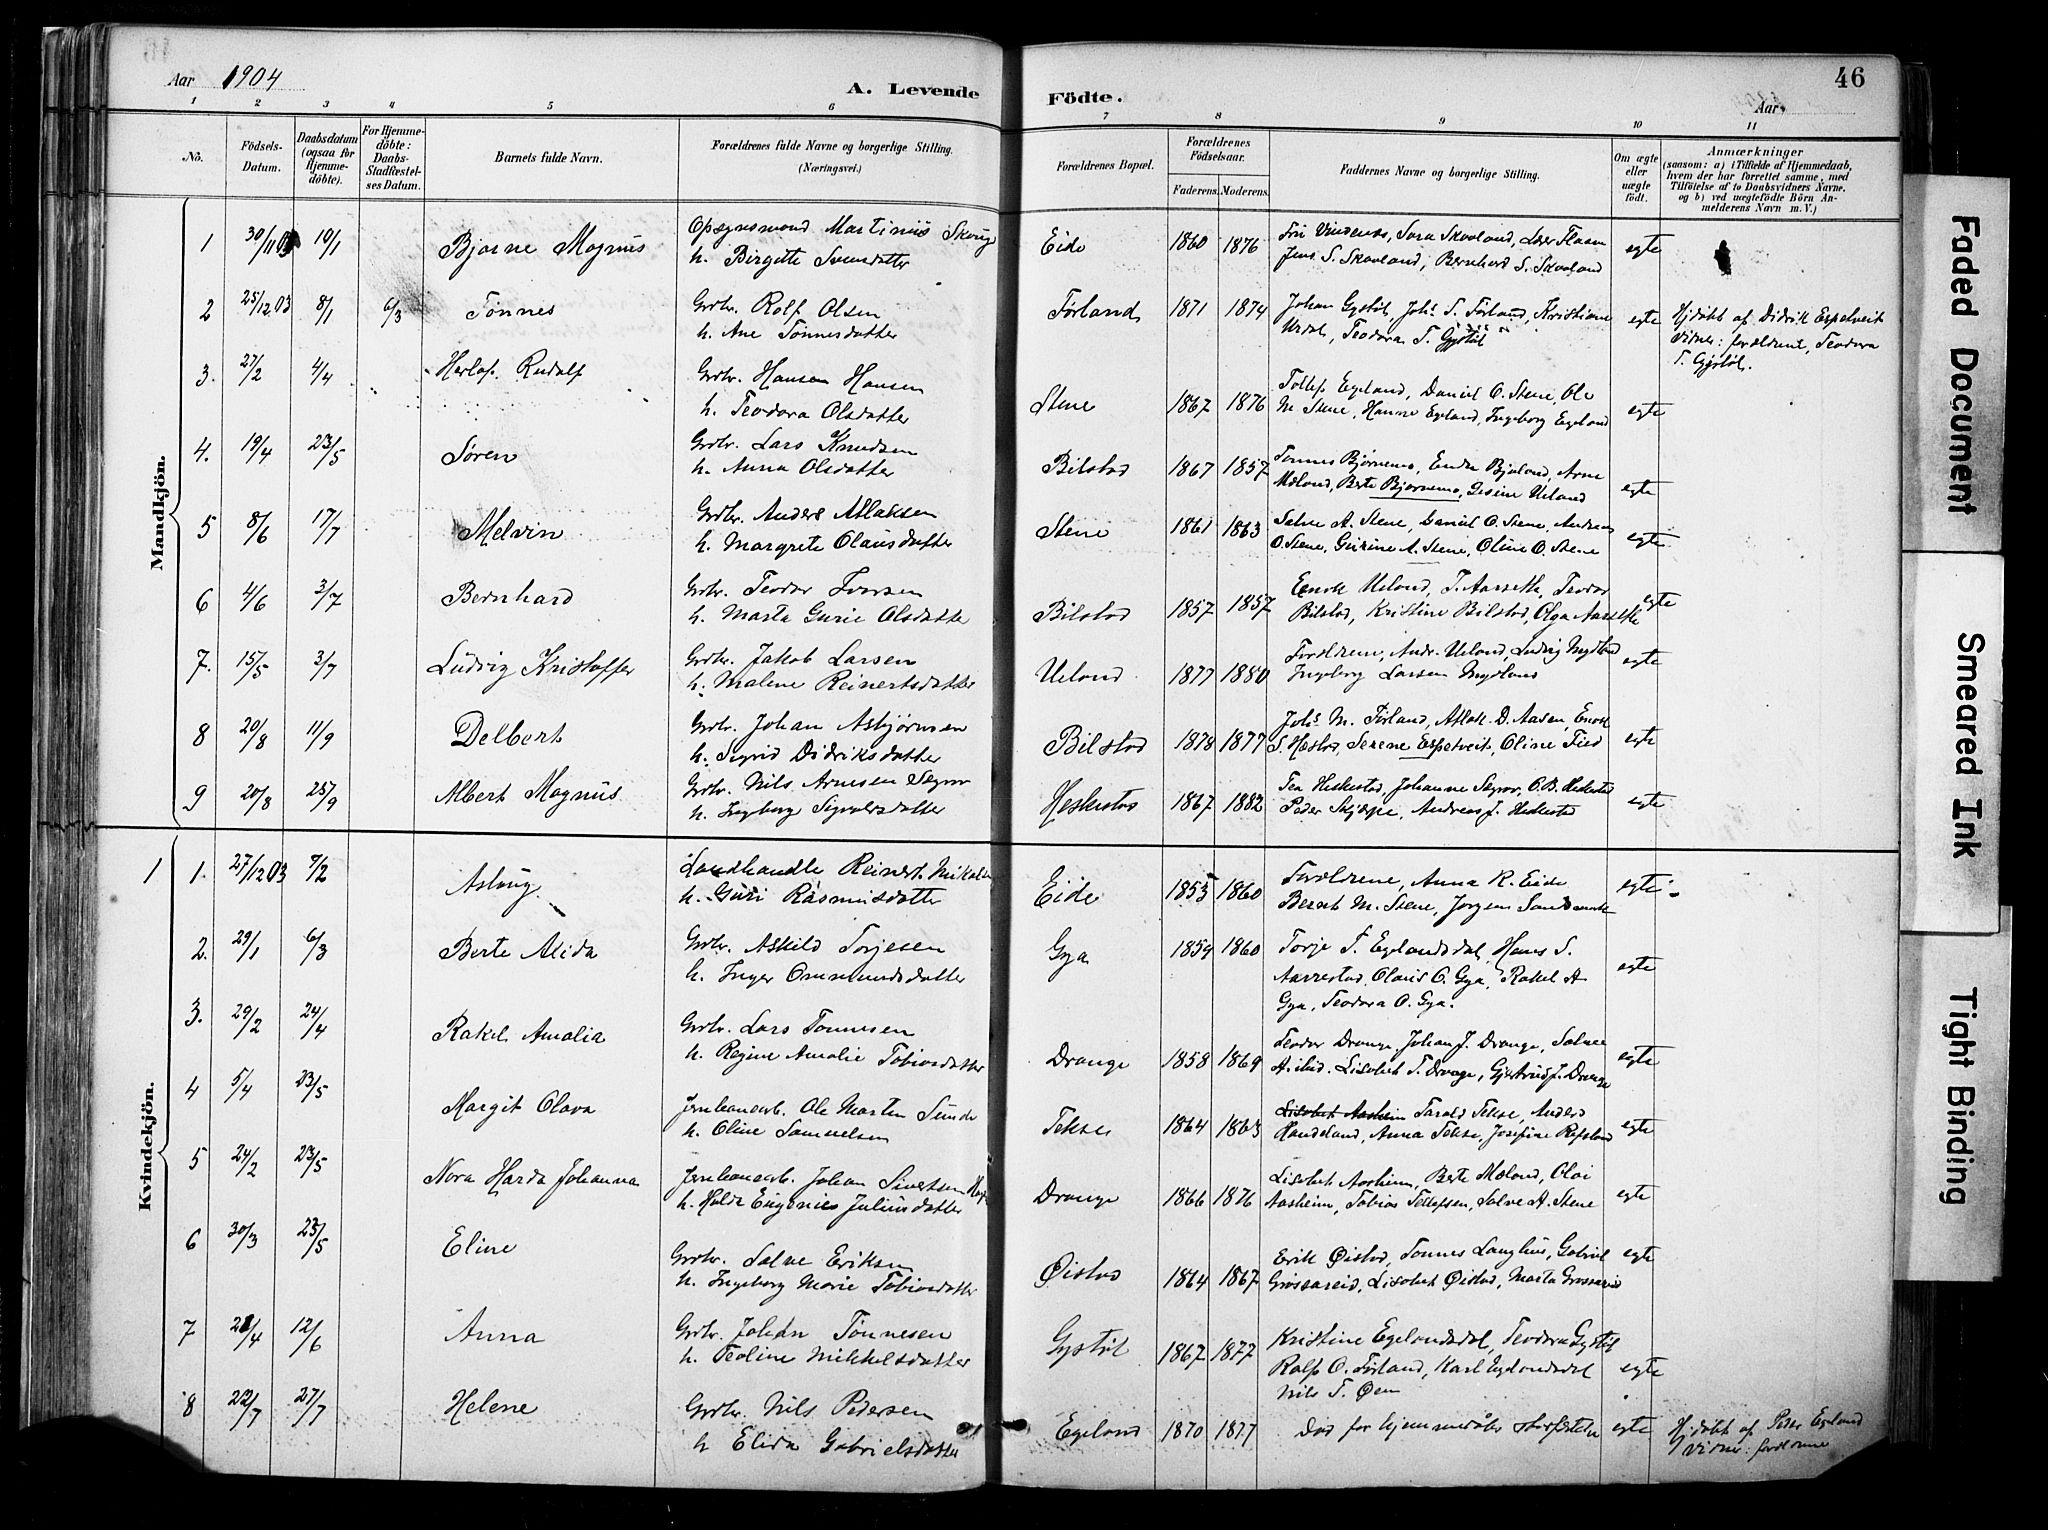 Aar 1904
A. Levende Födte.
Aar
46
1 2 3 4 5 6 7 8 9 10 11
No.
Födsels-Datum.
Daabsdatum (ogsaa for Hjemme-döbte).
For Hjemme-döbte: Daabs-Stadfæstel-ses Datum.
Barnets fulde Navn.
Forældrenes fulde Navne og borgerlige Stilling.
(Næringsvei.)
Forældrenes Bopæl.
Forældrenes Födselsaar.
Faderens. Moderens.
Faddernes Navne og borgerlige Stilling.
Om ægte eller uægte födt.
Anmærkninger
(saasom: a) i Tilfælde af Hjemmedaab,
hvem der har forrettet samme, med
Tilföielse af to Daabsvidners Navne.
og b) ved uægtefödte Börn An-
melderens Navn m.V.)
Mandkjön.
1 30/11 03 10/1 Bjarne Magnus Opsynsmand Martinius Skauge
h. Birgitte Svendsdatter
Eide 1860 1876 Sara Skaaland,
Jens S. Skaaland, Bernhard S. Skaaland egte
2 25/12 03 8/1 6/3 Tönnes Grdbr. Rolf Olsen
h. Ane Tönnesdatter
Förland 1871 1874 Johan Gystöl, Johs S. Förland, Kristiane
Urdal, Teodora T. Gystöl egte
Hjdöbt af Didrik Espetveit
Vidner: forældrene, Teodora
T. Gystöl.
3. 27/2 4/4 Herlof Rudolf Grdbr. Hansen Hansen
h. Teodora Olsdatter
Stene 1867 1876 Tollef Egeland, Daniel O. Stene, Ole
M Stene, Hanne Egeland, Ingeborg Egeland egte
4. 19/4 23/5 Sören Grdbr. Lars Knudsen
h. Anna Olsdatter
Bilstad 1867 1857 Tönnes Bjørnemo, Endre Bjuland, Arne
Mæland, Berte Bjørnemo, Gesine Ueland egte
5 8/6 17/7 Melvin Grdbr. Anders Atlaksen
h. Margrete Olausdatter
Stene 1861 1863 Salve A. Stene, Daniel O. Stene, Andreas
O. Stene, A. Stene, Oline O. Stene egte
6 4/6 3/7 Bernhard Grdbr. Teodor Ivarsen
h. Marta Gurie Olsdatter
Bilstad 1857 1857 Enok Ueland, T. Aarseth, Teodor
Bilstad, Kristine Bilstad, Olga Aarseth egte
7. 15/5 3/7 Ludvig Kristoffer Grdbr. Jakob Larsen
h. Malene Reinertsdatter
Ueland 1877 1880 Forældrene, Andr. Ueland, Ludvig Mydland
Ingeborg Larsen Mydland egte
8 20/8 11/9 Delbert Grdbr. Johan Asbjørnsen
h. Sigrid Didriksdatter
Bilstad 1878 1877 Johs M. Förland, Atlak D. Aasen, Enok
S. Hestad, Serene Espetveit, Oline Fied egte
9 20/8 25/9 Albert Magnus Grdbr. Nils Arnesen Segrov
h. Ingeborg Sigvalsdatter
Heskestad 1867 1882 Tea Heskestad, Johanne Segrov, O.B. Heskestad
Peder Skjerpe, Andreas J. Heskestad egte
Kvindekjön.
1 1. 27/12 03 7/2 Aslaug Landhandle Reinert Mikalsen
h. Guri Rasmusdatter
Eide 1853 1860 Forældrene, Anna R. Eide
Berent M. Stene, Jørgen Sandsmark egte
2. 29/1 6/3 Berte Alida Grdbr. Askild Torjesen
h. Inger Ommundsdatter
Gya 1859 1860 Torje T. Egelandsdal, Hans S.
Aarrestad, Olaus O. Gya, Rakel A
Gya, Teodora O. Gya. egte
3. 29/2 24/4 Rakel Amalia Grdbr. Lars Tønnesen
h. Regine Amalie Tobiasdatter
Drange 1858 1869 Teodor Drange, Johan J. Drange, Salve
A. ibid. Lisabet T. Drange, Gjertrud J. Drange egte
4 5/4 23/5 Margit Olava Jernbanearb. Ole Martin Sunde
h. Oline Samuelsen
Tekse 1864 1863 Lisabet Aasheim Tarald Tekse, Anders
Handeland, Anna Tekse, Josefine Refsland egte
5 24/2 23/5 Nora Harda Johanna Jernbanearb. Johan Sivertsen
h. Hulda Eugenie Juliusdatter
Drange 1866 1876 Lisabet Aasheim, Berte Mæland, Olai
Aasheim, Tobias Tollefsen, Salve A. Stene egte
6 30/3 23/5 Eline Grdbr. Salve Eriksen
h. Ingeborg Marie Tobiasdatter
Øistad 1864 1867 Erik Øistad, Tønnes Langhus, Gabriel
Grøssereid, Lisabet Øistad, Marta Grøssereid egte
7 21/4 12/6 Anna Grdbr. Johan Tönnesen
h. Teoline Mikkelsdatter
Gystöl 1867 1877 Kristine Egelandsdal, Teodora Gystöl
Ralf O. Förland, Karl Egelandsdal
Nils T. Øen egte
8 22/7 27/7 Helene Grdbr. Nils Pedersen
h Elida Gabrielsdatter
Egeland 1870 1877 Død før hjemmedåbs stadfæstelse egte
Hjdøbt af Peder Egeland
Vidner: forældrene
Faded Document
Smeared Ink
Tight Binding